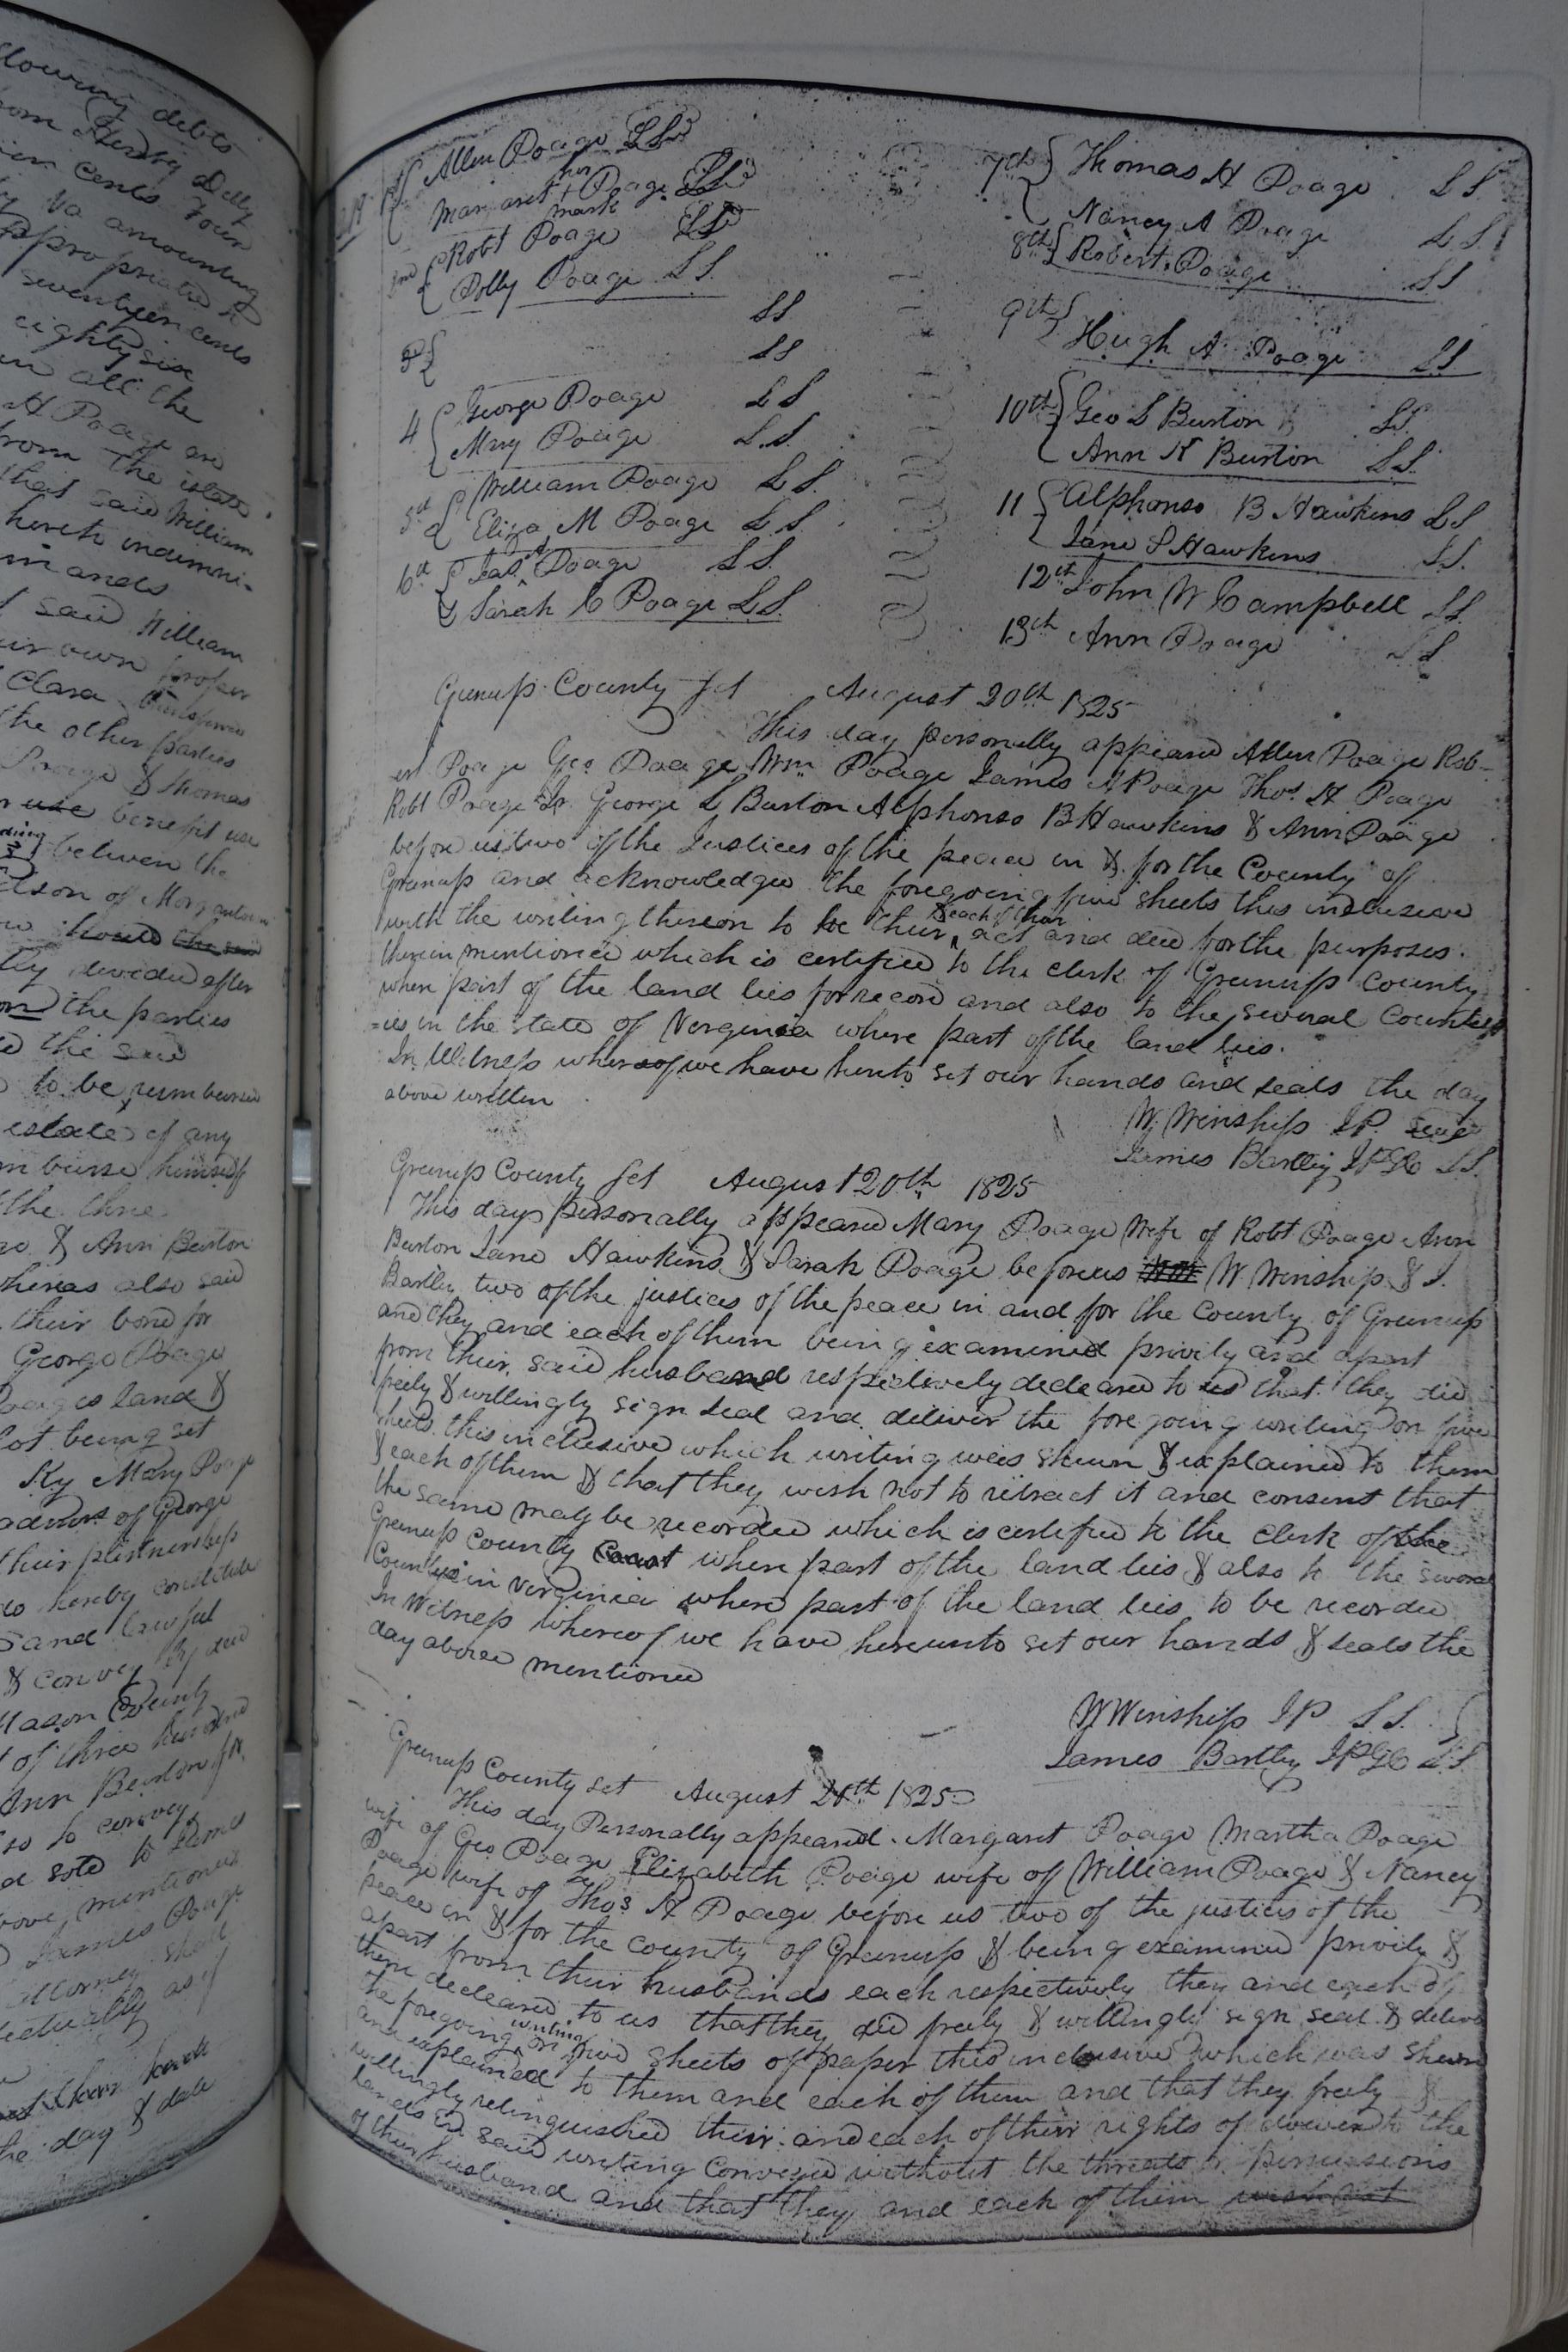 llowing debts
from Henby Delly
cents Four
Va amounting
appropriated to
seventyen cents
eighty six
in all the
H Poage are
from the estate
that said William
herech indemni-
mands
said William
our own proper
Clara
the other parties
Poage & Thomas
use benefit use
between the
of Morgantown
should the said
tly devided after
the parties
the said
to be reimbursed
estate of any
imburse himself
the three
& Ann Burton
whereas also said
their bond for
George Poage
Poages land &
lot being set
Ky Mary Poage
admrs of George
their partnership
do hereby constitute
and lawful
& convey by deed
Mason County
of three hundred
Ann Burton for
so to convey
sold to James
above mentioned
James Poage
attorney shall
fectually as if
the day & date
1st { Allen Poage LS
her
Margaret + Poage LS
mark
2nd { Robt Poage LS
Polly Poage LS
LS
3d { LS
4 { George Poage LS
Mary Poage L.S.
5d { William Poage LS.
Eliza M Poage LS
6d { Jas A Poage LS
& Sarah C Poage LS.
7th { Thomas H Poage LS
Nancy A Poage LS
8th { Robert Poage LS
9th {
Hugh A Poage LS
10th { Geo S Burton LS
Ann K Burton LS
11 { Alphonso B Hawkins LS
Jane S Hawkins LS.
12th John W Campbell LS
13th Ann Poage LS
Greenup County Sct August 20th 1825
This day personally appeared Allen Poage Rob-
ert Poage Geo Poage Wm Poage James A Poage Thos. H Poage
Robt Poage Jr. George S Burton Alphonso B Hawkins & Ann Poage
before us two of the Justices of the peace in & for the County of
Greenup and acknowledge the foregoing five sheets this inclusive
with the writing thereon to be their & each of their act and deed for the purposes
therein mentioned which is certified to the clerk of Greenup County
where part of the land lies for record and also to the several Counties
=ies in the state of Verginia where part of the land lies.
In Witness whereof we have hereto set our hands and seals the day
above written
W Winship JP. Seal
James Bartley JPGC LS.
Greenup County Sct August 20th 1825
This day personally appeared Mary Poage Wife of Robt Poage Ann
Burton Jane Hawkins & Sarah Poage before us W Winship & J.
Bartley two of the justices of the peace in and for the County of Greenup
and they and each of them being examined privily and apart
from their said husband respectively declared to us that they did
freely & willingly sign seal and deliver the foregoing writing on five
sheets this inclusive which writing was shewn & explained to them
& each of them & that they wish not to retract it and consent that
the same may be recorded which is certified to the clerk of the
Greenup County Court where part of the land lies & also to the several
Counties in Virginia where part of the land lies to be recorded
In Witness whereof we have hereunto set our hands & seals the
day above mentioned
W Winship JP LS.
James Bartley JPGC LS
Greenup County Sct August 20th 1825
This day Personally appeared Margaret Poage Martha Poage
wife of Geo Poage Elizabeth Poage wife of William Poage & Nancy
Poage wife of Thos H Poage before us two of the justices of the
peace in & for the county of Greenup & being examined privily &
apart from their husbands each respectively they and each of
them declared to us that they did freely & willingly sign seal & deliver
the foregoing writing on five sheets of paper this inclusive which was shewn
and explained to them and each of them and that they freely &
willingly relinquished their and each of their rights of dower to the
lands in said writing Conveyed without the threats or Permissions
of their husband and that they and each of them wish not